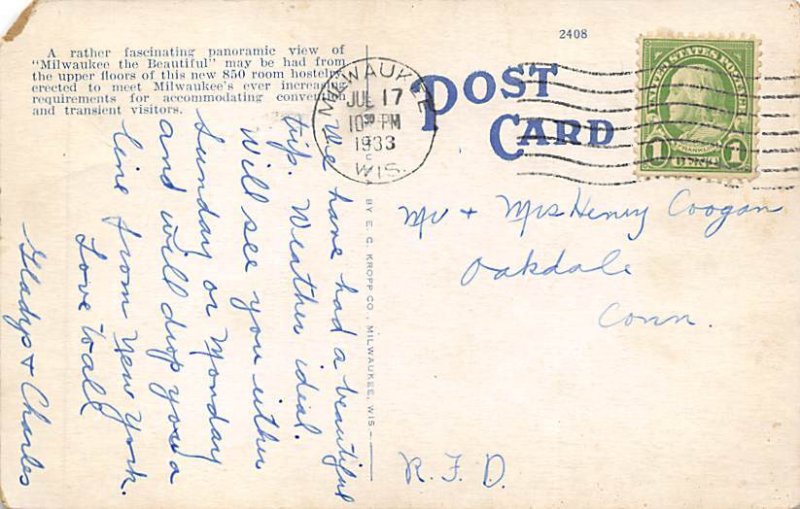 A rather fascinating panoramic view of
"Milwaukee the Beautiful" may be had from
the upper floors of this new 850 room hostelry
erected to meet Milwaukee's ever increasing
requirements for accommodating convention
and transient visitors.
2408
POST
CARD
MILWAUKEE
JUL 17
10 30 PM
1933
WIS.
UNITED STATES POSTAGE
FRANKLIN
1 1
We have had a beautiful
trip. Weather ideal.
Will see you either
Sunday or Monday
and will drop you a
line from New York.
Love to all
Gladys + Charles
BY E. C. KROPP CO., MILWAUKEE, WIS.
Mr + Mrs Henry Coogan
Oakdale
Conn.
R.F.D.